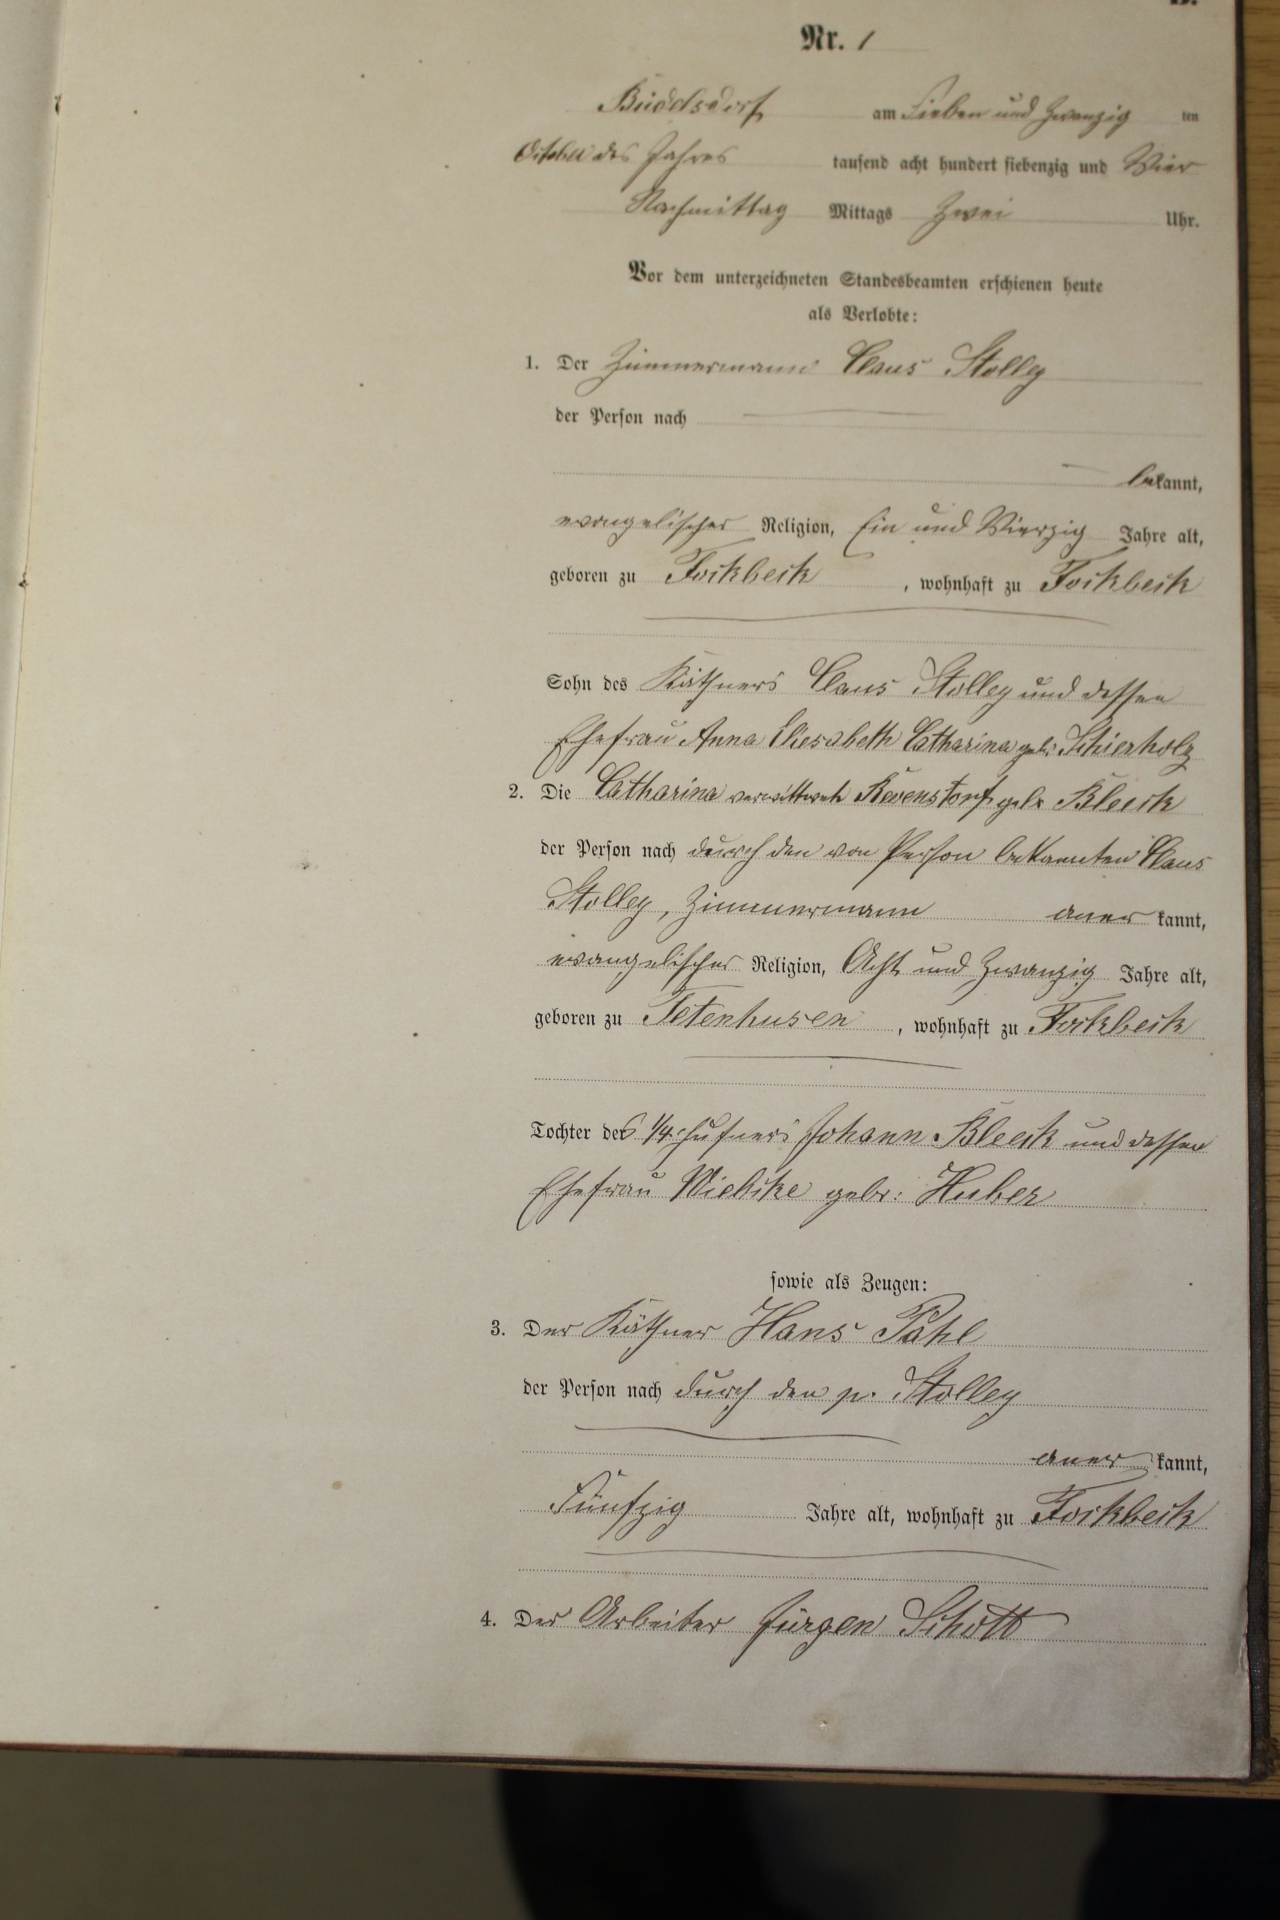 Nr. 1
Büddsdorf am Sieben und Zwanzig ten
October des Jahres tausend acht hundert siebenzig und Vier
Nachmittag Mittags Zwei Uhr.
Vor dem unterzeichneten Standesbeamten erschienen heute
als Verlobte:
1. Der Zimmermann Claus Stolley
der Person nach
bekannt,
evangelischer Religion, Ein und Vierzig Jahre alt,
geboren zu Fockbeck, wohnhaft zu Fockbeck
Sohn des Käthners Claus Stolley und dessen
Ehefrau Anna Eliesabeth Catharina geb: Schierholz
2. Die Catharina verwittwete Revenstorf geb: Bleeck
der Person nach durch den von Person bekannten Claus
Stolley, Zimmermann anerkannt,
evangelischer Religion, Acht und Zwanzig Jahre alt,
geboren zu Tetenhusen, wohnhaft zu Fockbeck
Tochter des 1/4 Hufners Johann Bleeck und dessen
Ehefrau Wiebcke gebr: Huber
sowie als Zeugen:
3. Der Käthner Hans Pahl
der Person nach durch den p. Stolley
anerkannt,
Fünfzig Jahre alt, wohnhaft zu Fockbeck
4. Der Arbeiter Jürgen Schott